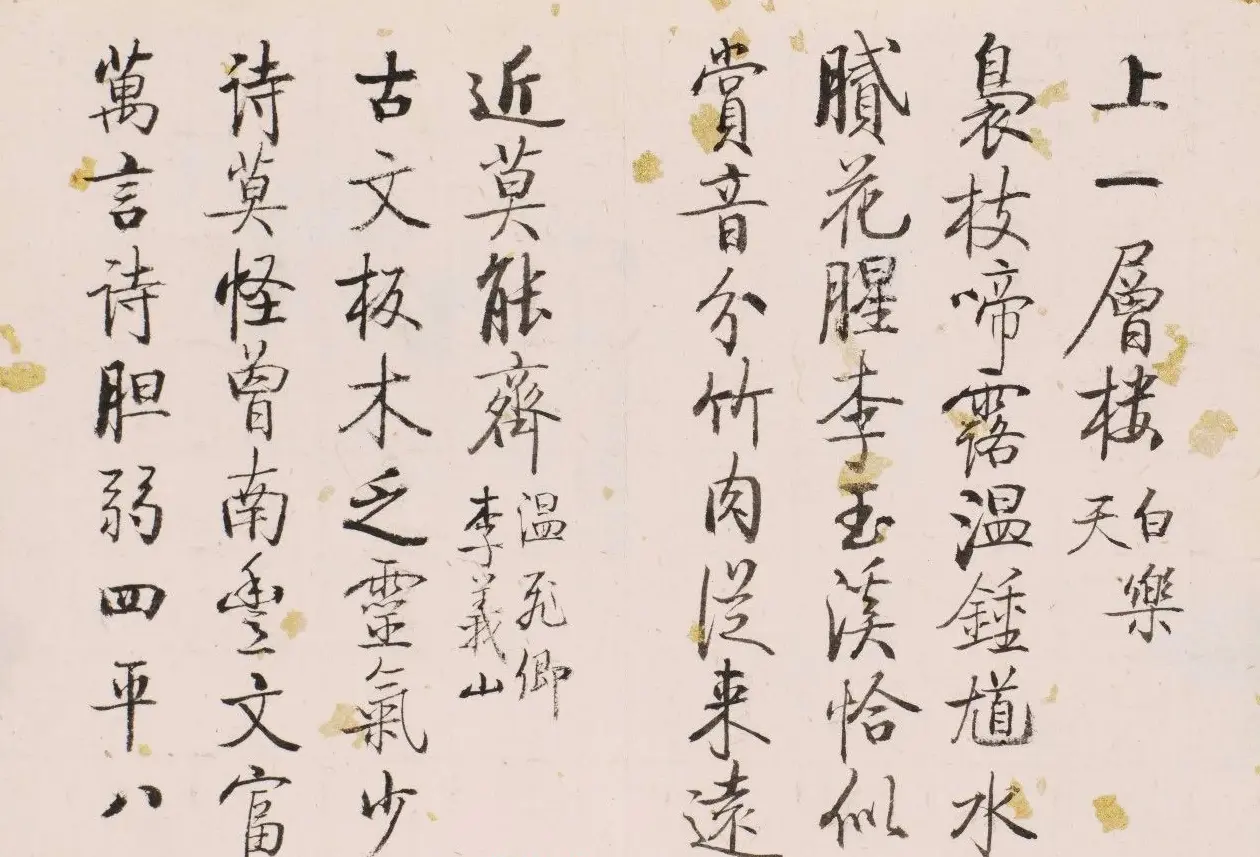 上一層樓 白樂天
裊枝啼露温鍾馗水
膩花腥李玉溪恰似
賞音分竹肉從来遠
近莫能齊 温飛卿 李義山
古文板木乏靈氣少
詩莫怪曾南豐文富
萬言詩胆弱四平八